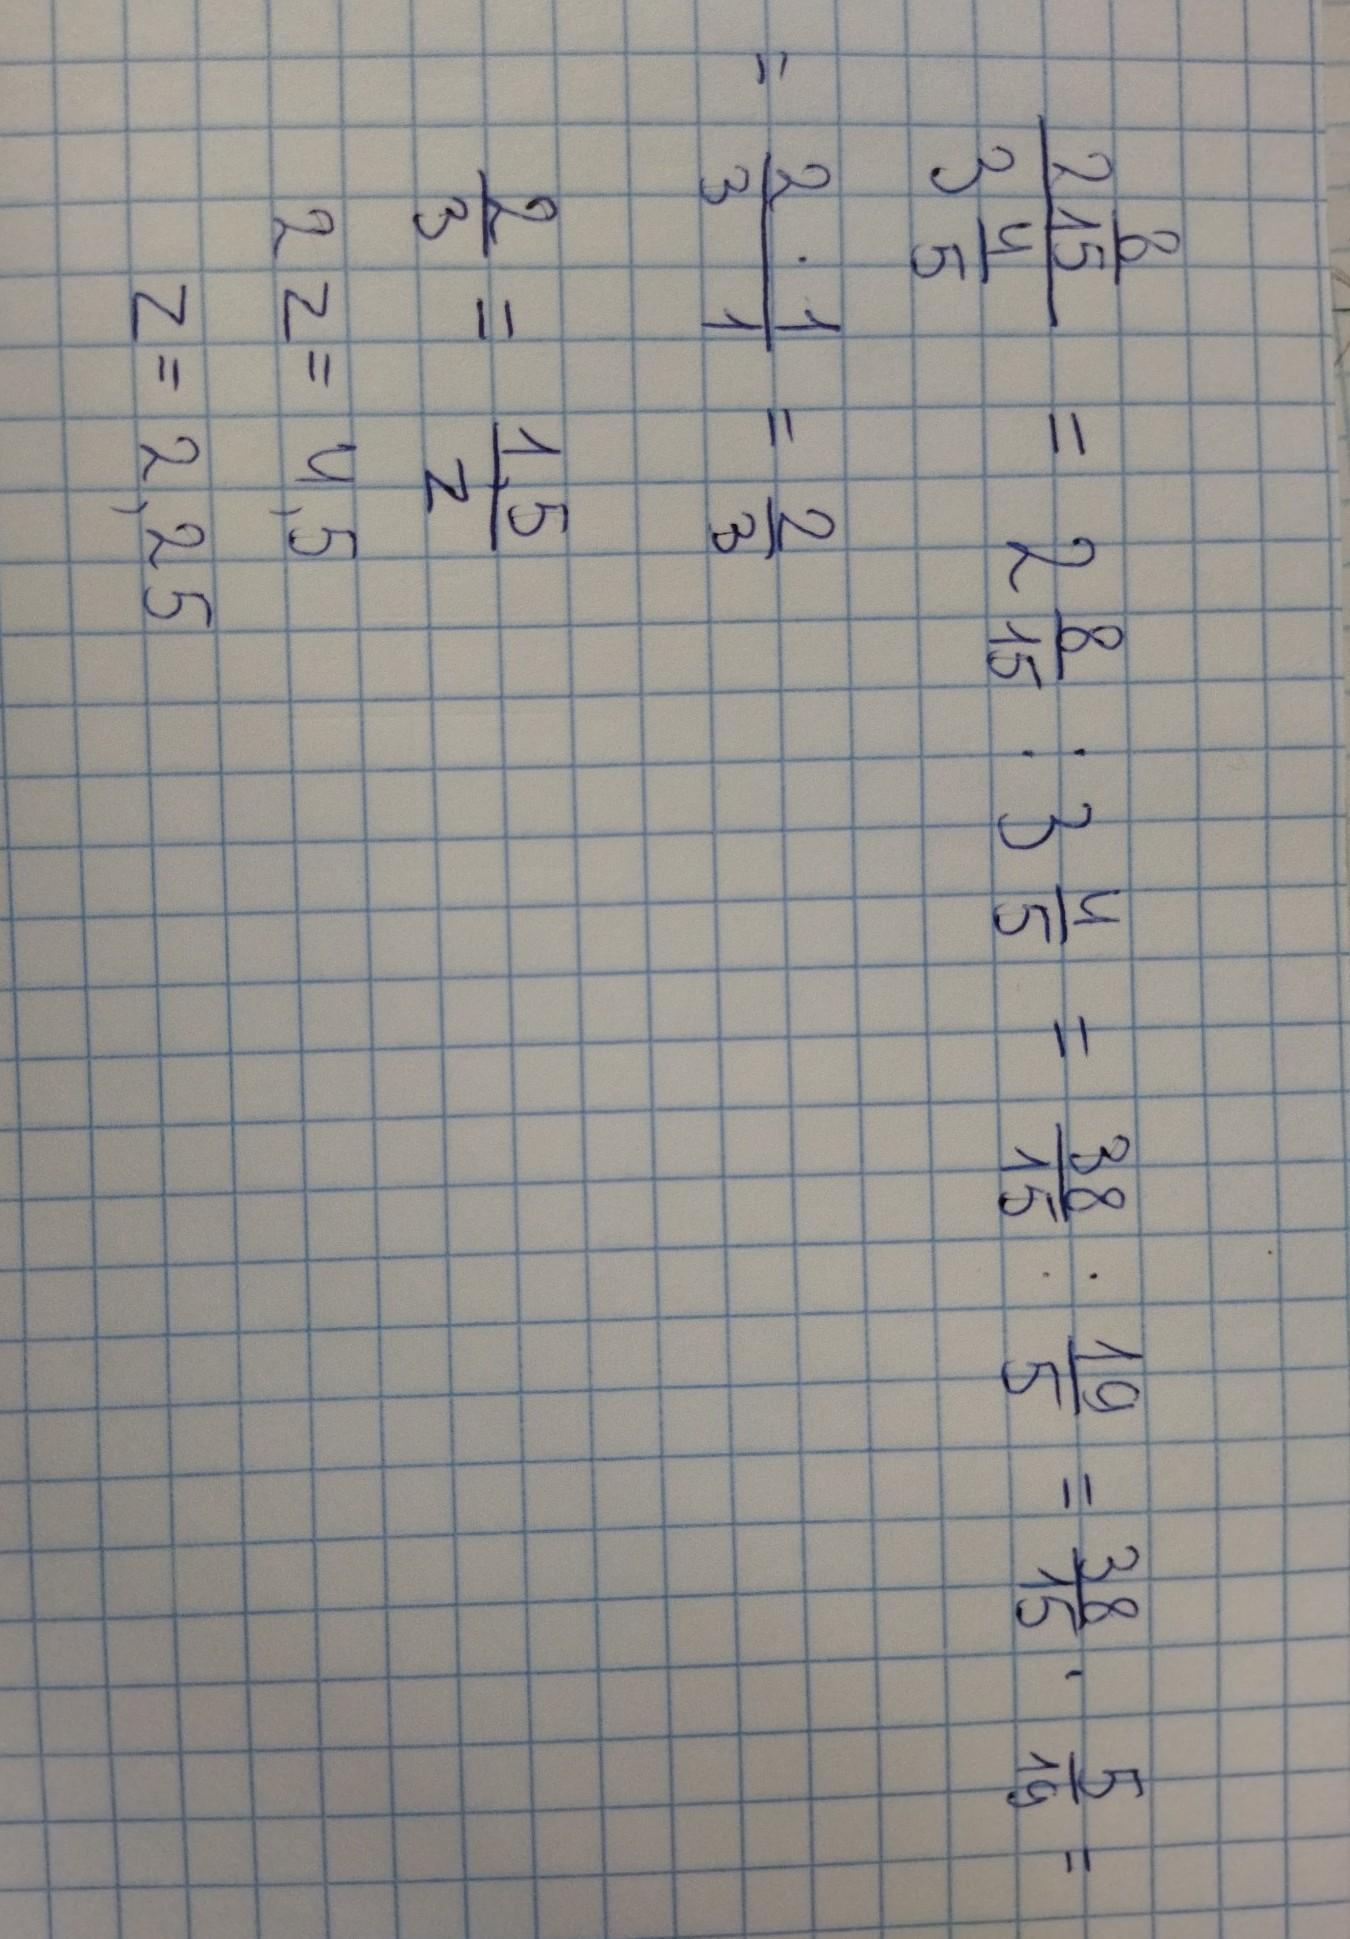 2 8/15 / 3 4/5 = 2 8/15 : 3 4/5 = 38/15 : 19/5 = 38/15 · 5/19 =
= 2 · 1 / 3 1 = 2/3
2/3 = 1,5/z
2z = 4,5
z = 2,25